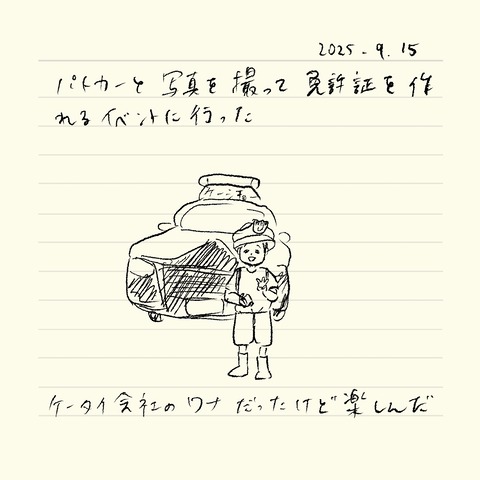 2025.9.15
パトカーと写真を撮って免許証を作
れるイベントに行った
ケータイ会社のワナだったけど楽しんだ